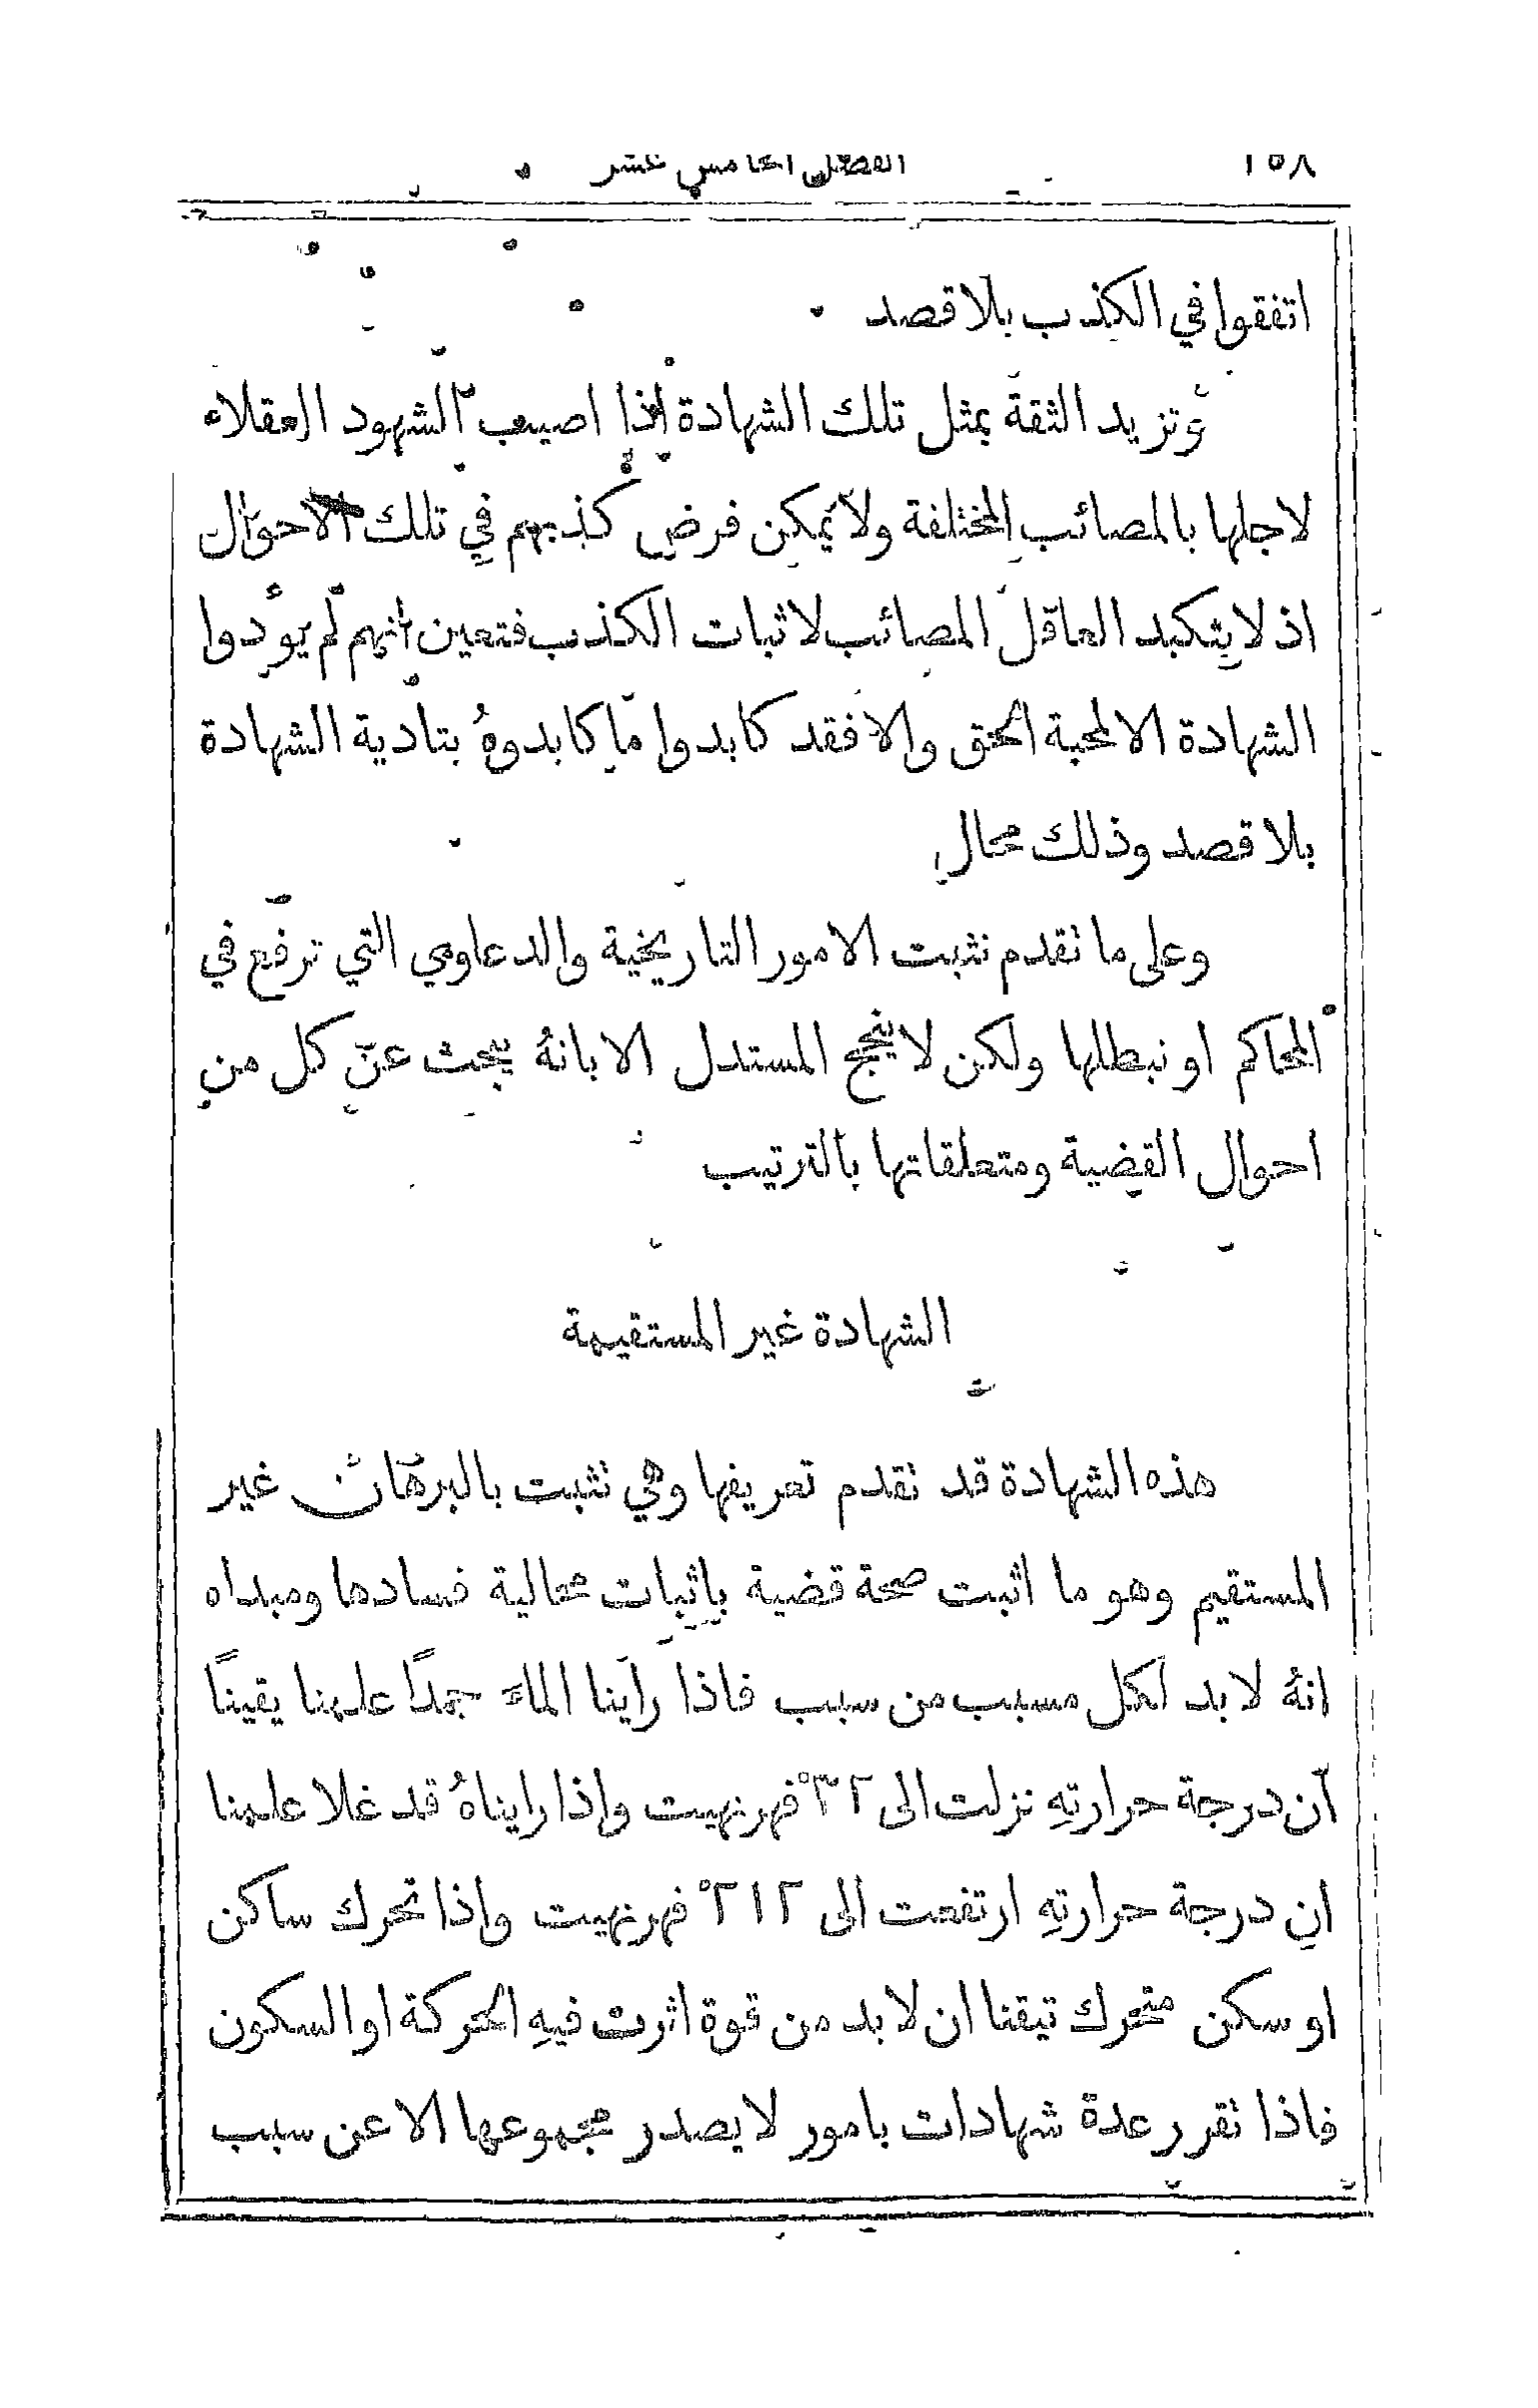 ١٥٨ الفصل الخامس عشر
اتفقوا في الكذب بلا قصد
وتزيد الثقة بمثل تلك الشهادة اذا اصيب الشهود العقلاء
لاجلها بالمصائب المختلفة ولا يمكن فرض كذبهم في تلك الاحوال
اذ لا يتكبد العاقل المصائب لاثبات الكذب فتعين انهم لم يودوا
الشهادة الا لمحبة الحق والا فقد كابدوا ما كابدوهُ بتادية الشهادة
بلا قصد وذلك محال
وعلى ما نقدم نثبت الامور التاريخية والدعاوي التي ترفع في
المحاكم او نبطلها ولكن لا ينجح المستدل الا بانهُ يبحث عن كل من
احوال القضية ومتعلقاتها بالترتيب
الشهادة غير المستقيمة
هذه الشهادة قد نقدم تعريفها وهي نثبت بالبرهان غير
المستقيم وهو ما اثبت صحة قضية باثبات محالية فسادها ومبداه
انهُ لا بد لكل مسبب من سبب فاذا راينا الماء جمدًا علمنا يقينًا
ان درجة حرارتهِ نزلت الى ٣٢° فهرنهيت واذا رايناهُ قد غلا علمنا
ان درجة حرارتهِ ارتفعت الى ٢١٢° فهرنهيت واذا تحرك ساكن
او سكن متحرك تيقنا ان لا بد من قوة اثرت فيهِ الحركة او السكون
فاذا نقرر عدة شهادات بامور لا يصدر مجموعها الا عن سبب